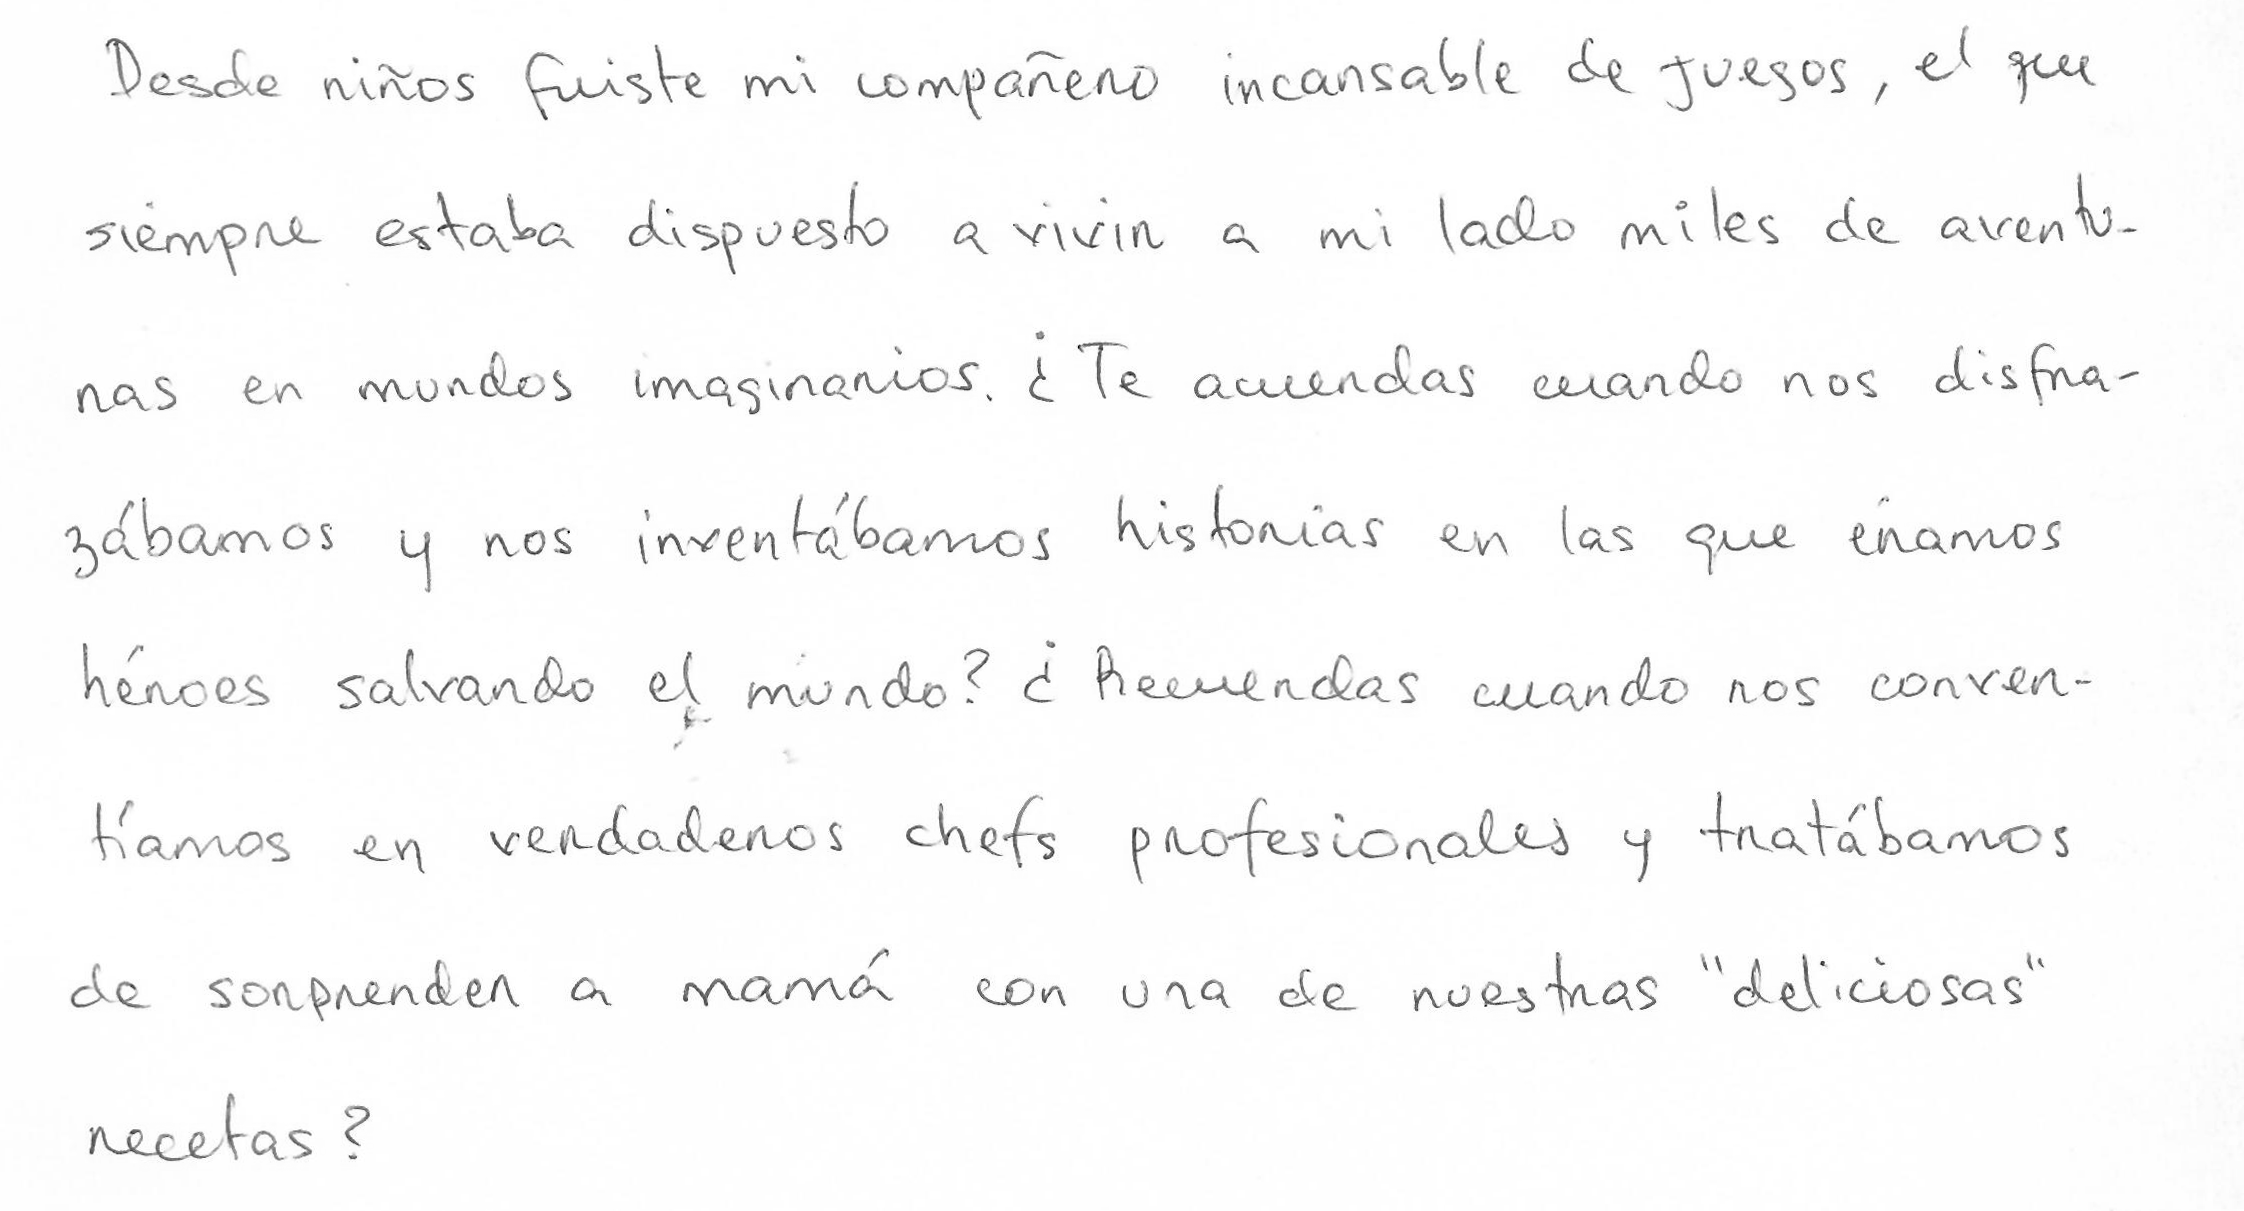 Desde niños fuiste mi compañero incansable de juegos, el que
siempre estaba dispuesto a vivir a mi lado miles de aventu-
ras en mundos imaginarios. ¿Te acuerdas cuando nos disfra-
zábamos y nos inventábamos historias en las que éramos
héroes salvando el mundo? ¿Recuerdas cuando nos conver-
tíamos en verdaderos chefs profesionales y tratábamos
de sorprender a mamá con una de nuestras "deliciosas"
recetas?